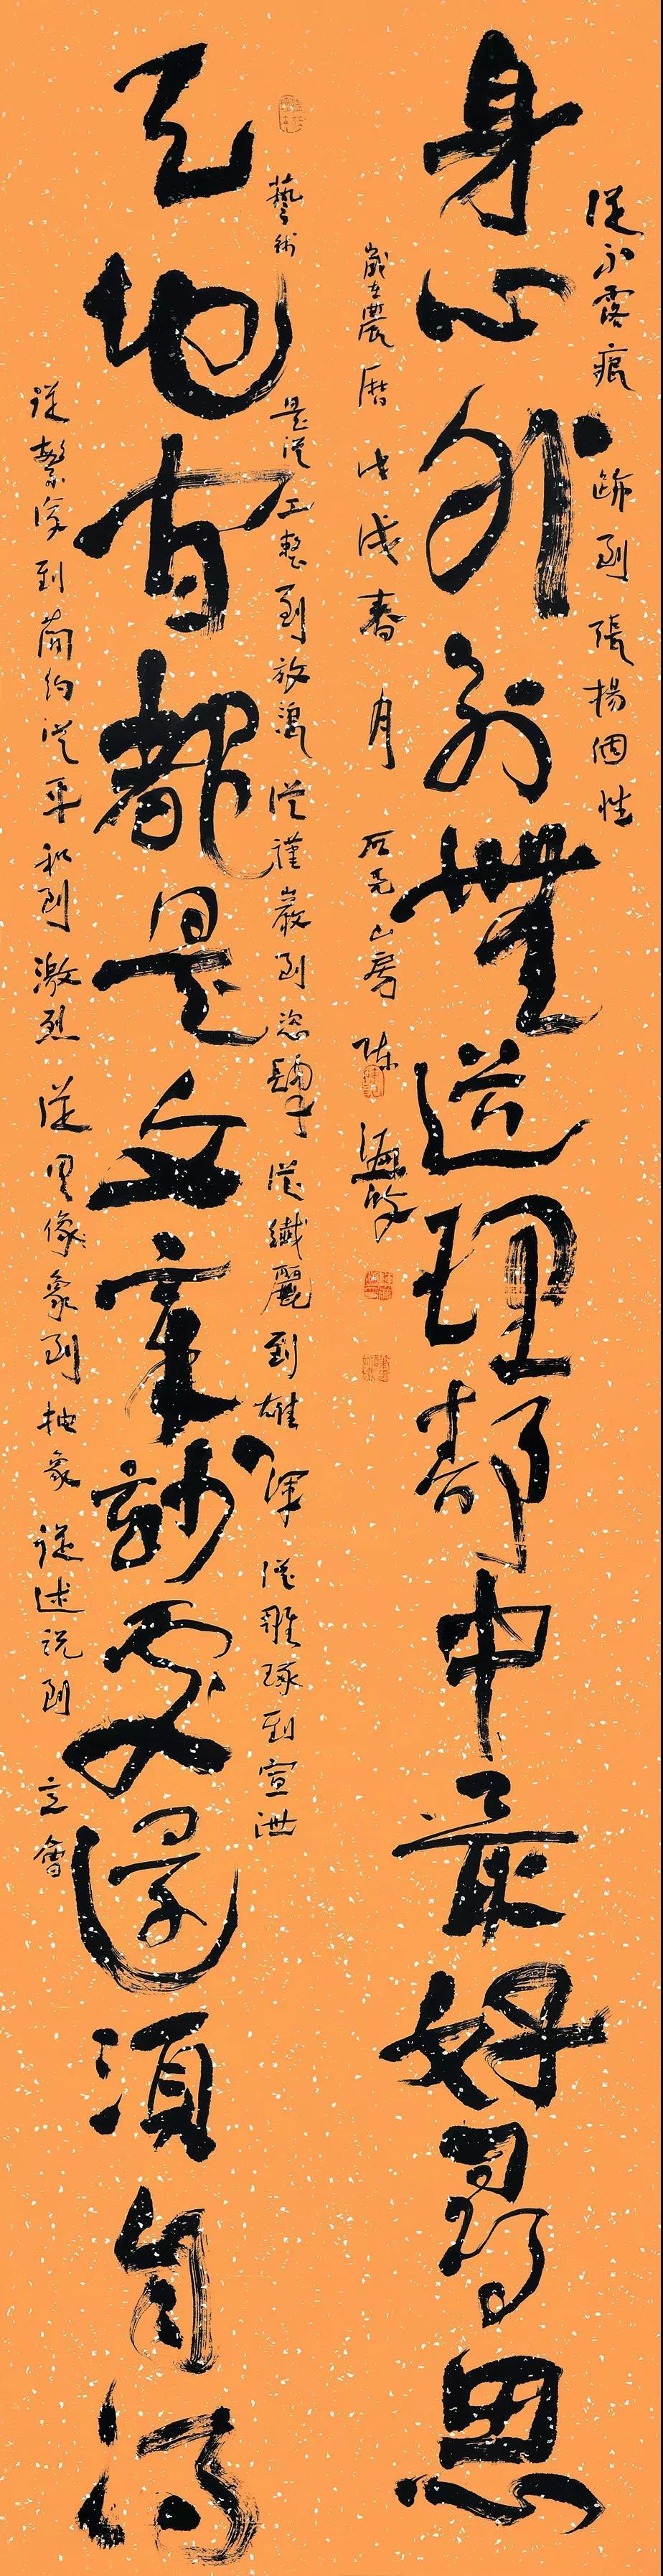 從不露痕跡到張揚個性
身心外別無道理靜中最好尋思
歲在農曆戊戌春月石山房陳海
藝術是從工整到放從謹嚴到恣肆從纖麗到雄渾從雕琢到宣泄
天地間都是文章妙處還須自得
從繁縟到簡約從平和到激烈從具像象到抽象從述說到意會